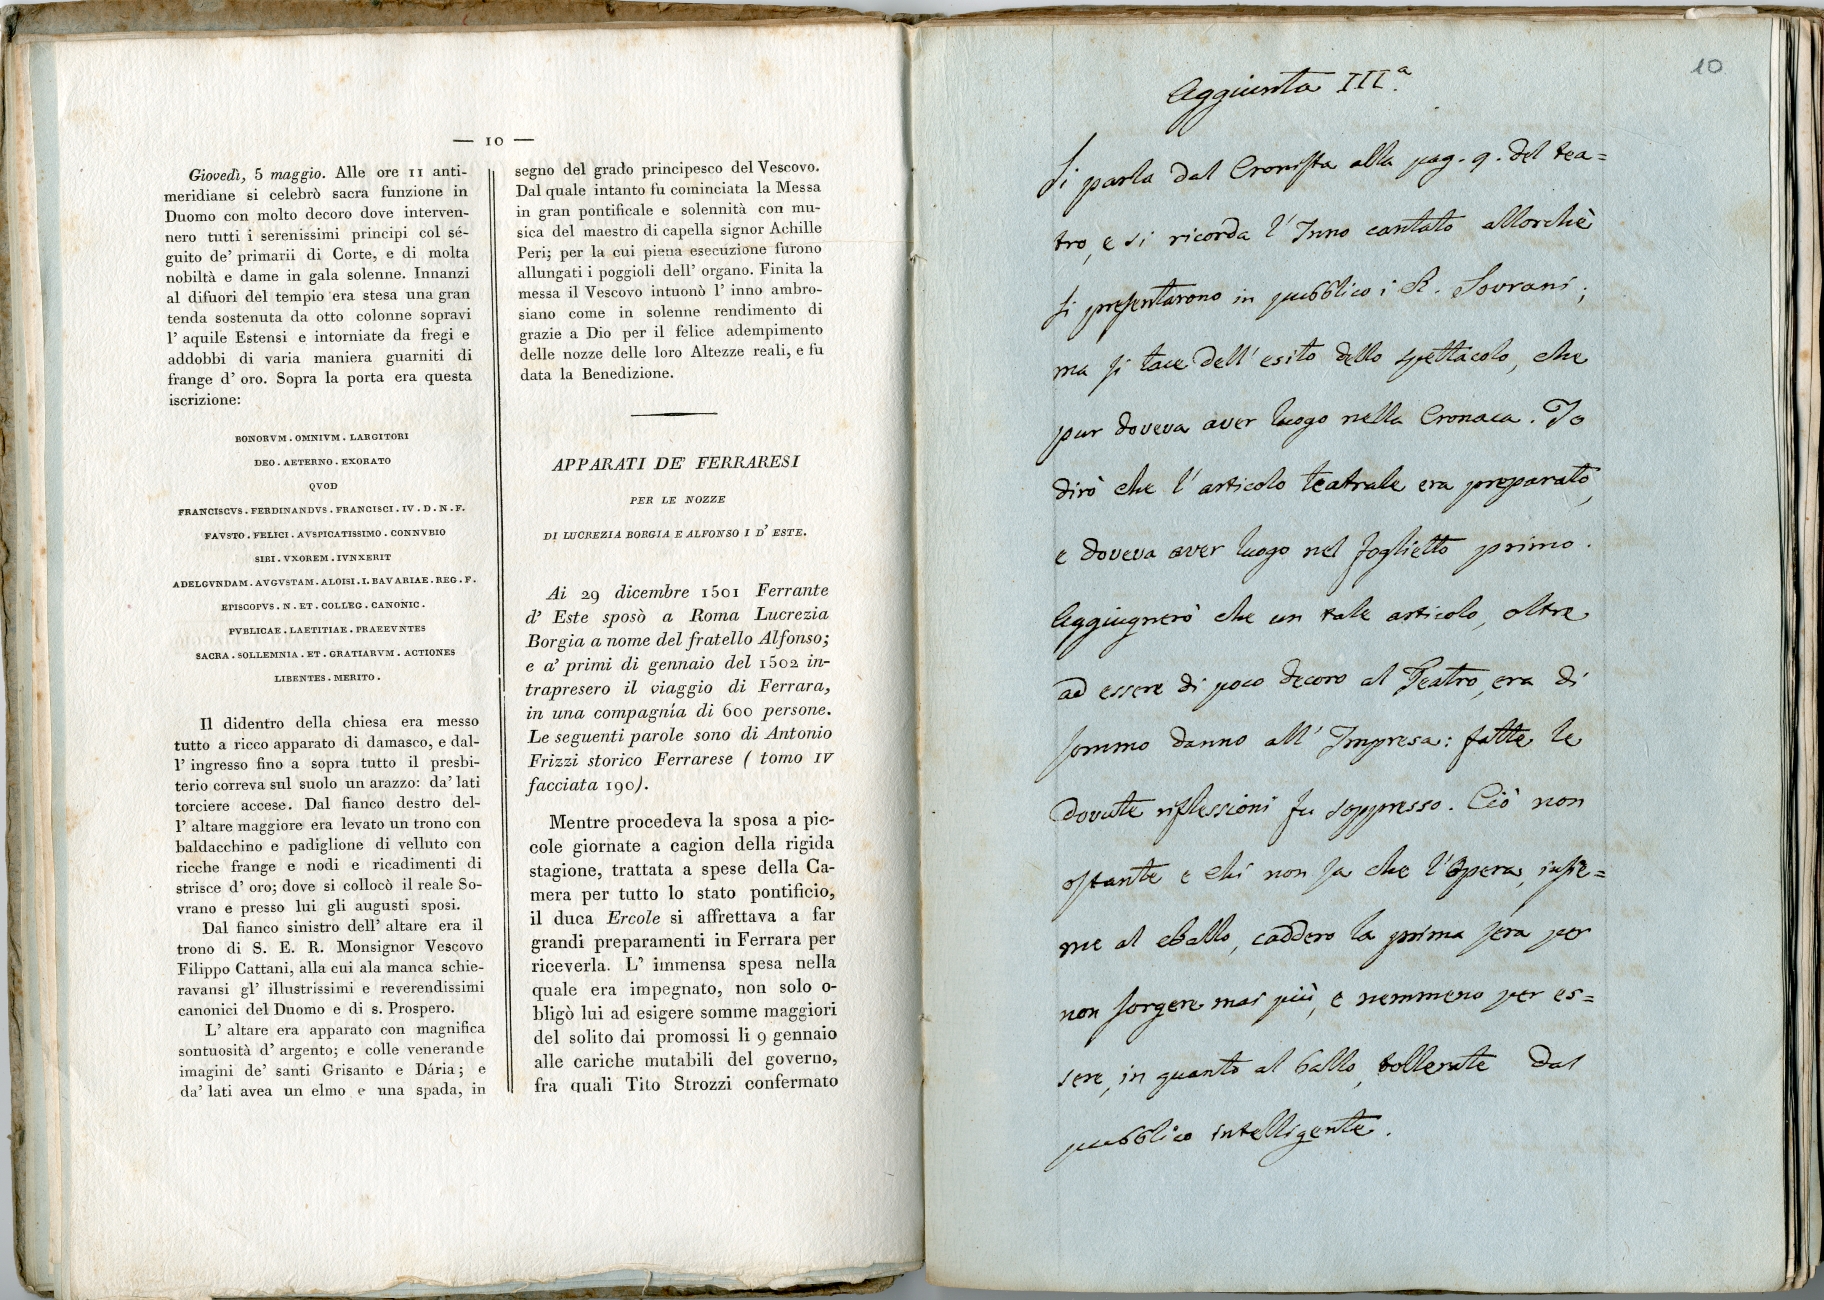 — 10 —
Giovedì, 5 maggio. Alle ore 11 anti-
meridiane si celebrò sacra funzione in
Duomo con molto decoro dove interven-
nero tutti i serenissimi principi col sé-
guito de' primarii di Corte, e di molta
nobiltà e dame in gala solenne. Innanzi
al difuori del tempio era stesa una gran
tenda sostenuta da otto colonne sopravi
l' aquile Estensi e intorniate da fregi e
addobbi di varia maniera guarniti di
frange d' oro. Sopra la porta era questa
iscrizione:
BONORVM . OMNIVM . LARGITORI
DEO . AETERNO . EXORATO
QVOD
FRANCISCVS . FERDINANDVS . FRANCISCI . IV . D . N . F.
FAVSTO . FELICI . AVSPICATISSIMO . CONNVBIO
SIBI . VXOREM . IVNXERIT
ADELGVNDAM . AVGVSTAM . ALOISI . I . BAVARIAE . REG . F.
EPISCOPVS . N . ET . COLLEG . CANONIC .
PVBLICAE . LAETITIAE . PRAEEVNTES
SACRA . SOLLEMNIA . ET . GRATIARVM . ACTIONES
LIBENTES . MERITO .
Il didentro della chiesa era messo
tutto a ricco apparato di damasco, e dal-
l' ingresso fino a sopra tutto il presbi-
terio correva sul suolo un arazzo: da' lati
torciere accese. Dal fianco destro del-
l' altare maggiore era levato un trono con
baldacchino e padiglione di velluto con
ricche frange e nodi e ricadimenti di
strisce d' oro; dove si collocò il reale So-
vrano e presso lui gli augusti sposi.
Dal fianco sinistro dell' altare era il
trono di S. E. R. Monsignor Vescovo
Filippo Cattani, alla cui ala manca schie-
ravansi gl' illustrissimi e reverendissimi
canonici del Duomo e di s. Prospero.
L' altare era apparato con magnifica
sontuosità d' argento; e colle venerande
imagini de' santi Grisanto e Dária; e
da' lati avea un elmo e una spada, in
segno del grado principesco del Vescovo.
Dal quale intanto fu cominciata la Messa
in gran pontificale e solennità con mu-
sica del maestro di capella signor Achille
Peri; per la cui piena esecuzione furono
allungati i poggioli dell' organo. Finita la
messa il Vescovo intuonò l' inno ambro-
siano come in solenne rendimento di
grazie a Dio per il felice adempimento
delle nozze delle loro Altezze reali, e fu
data la Benedizione.
APPARATI DE' FERRARESI
PER LE NOZZE
DI LUCREZIA BORGIA E ALFONSO I D' ESTE.
Ai 29 dicembre 1501 Ferrante
d' Este sposò a Roma Lucrezia
Borgia a nome del fratello Alfonso;
e a' primi di gennaio del 1502 in-
trapresero il viaggio di Ferrara,
in una compagnía di 600 persone.
Le seguenti parole sono di Antonio
Frizzi storico Ferrarese ( tomo IV
facciata 190).
Mentre procedeva la sposa a pic-
cole giornate a cagion della rigida
stagione, trattata a spese della Ca-
mera per tutto lo stato pontificio,
il duca Ercole si affrettava a far
grandi preparamenti in Ferrara per
riceverla. L' immensa spesa nella
quale era impegnato, non solo o-
bligò lui ad esigere somme maggiori
del solito dai promossi li 9 gennaio
alle cariche mutabili del governo,
fra quali Tito Strozzi confermato
10
Aggiunta III.ª
Si parla dal Cronista alla pag. 9. del tea=
tro, e si ricorda l' Inno cantato allorchè
si presentarono in pubblico i R. Sovrani;
ma si tace dell' esito dello spettacolo, che
pur doveva aver luogo nella Cronaca. Io
dirò che l' articolo teatrale era preparato,
e doveva aver luogo nel foglietto primo.
Aggiugnerò che un tale articolo, oltre
ad essere di poco decoro al Teatro, era di
sommo danno all' Impresa: fatte le
dovute riflessioni fu soppresso. Ciò non
ostante e chi non sa che l' Opera, insie=
me al Ballo, caddero la prima sera per
non sorgere mai più, e nemmeno per es=
sere, in quanto al ballo, tollerate dal
pubblico intelligente.